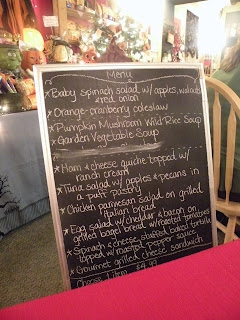 Menu
* Baby spinach salad w/ apples, walnuts
& red onion
* Orange-cranberry coleslaw
* Pumpkin Mushroom Wild Rice Soup
* Garden Vegetable Soup
* Ham & cheese quiche topped w/
ranch cream
* Tuna salad w/ apples & pecans in
a puff pastry
* Chicken parmesan salad on grilled
Italian bread
* Egg salad w/ cheddar & bacon on
grilled bagel bread w/ roasted tomatoes
* Spinach & cheese stuffed baked tortilla
topped w/ roasted pepper sauce
* Gourmet grilled cheese sandwich
Choose 1 item $4.99